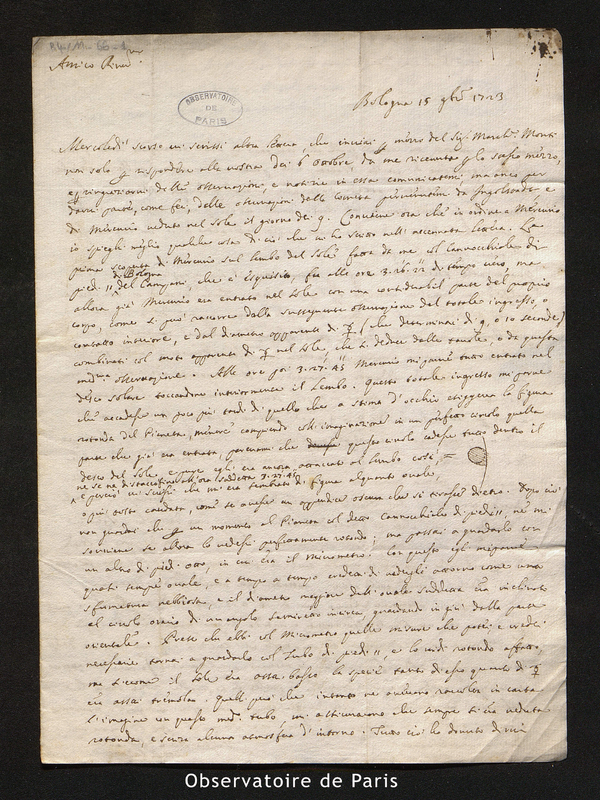 B4-11-66-1
Amico Riv.mo
OBSERVATOIRE
DE
PARIS
Bologna 15 9bre 1723
Mercoledì scorso vi scrissi altra lettera, che inviai per mezzo del Sig.r March. Monti
non solo per rispondere alla vostra dei 6 ottobre, da me ricevuta per lo stesso mezzo,
e ringraziarvi delle osservazioni, e notizie in essa comunicatemi ma anco per
darvi parte, come fei, delle osservazioni della Cometa
di Mercurio veduto nel Sole il giorno dei 9. Conviene ora che in ordine a Mercurio
vi spieghi meglio qualche cosa di ciò che vi ho scritto nell'accennata lettera. La
prima scoperta di Mercurio sul lembo del Sole fatta da me col Cannocchiale di
di Bologna
piedi 11 del Campani, che è esquisito, fu alle ore 3.26.22 di tempo vero, ma
allora già Mercurio era entrato nel Sole con una parte del proprio
corpo, come si può raccorre dalla susseguente osservazione del totale ingresso, o
contatto interiore, e dal diametro apparente di ☿ (che determinai di 9, o 10 secondi)
combinati col moto apparente di ☿ nel Sole, che si deduce dalle tavole, e da questa
med.ma osservazione. Alle ore poi 3.27.45 Mercurio mi parve tutto entrato nel
disco solare toccandone interiormente il lembo. Questo totale ingresso mi parve
che accadesse un poco più tardi di quello che a stima d'occhio esiggeva la figura
rotonda del Pianeta, mentre compiendo coll'imaginazione in un perfetto circolo quella
parte che già era entrata, parevami che questo circolo cadesse tutto dentro il
disco del Sole, e pure egli era ancora attaccato al lembo così,
ne se ne distaccò fino alle ore suddette 3.27.45
e perciò vi scrissi che mi era sembrato di figura alquanto ovale,
o più tosto caudato, come se avesse un appendice oscura che si traesse dietro. Dopo ciò
non guardai che per un momento al Pianeta col detto Cannocchiale di piedi 11, nè mi
sovviene se allora lo vedessi perfettamente rotondo; ma passai a guardarlo con
un altro di piedi otto, in cui era il micrometro. Con questo egli mi parve
quasi sempre ovale, e a tempo a tempo credea di vedergli attorno come una
sfumatura nebbiosa, e il diametro maggiore dell'ovale suddetta era inclinato
al circolo orario di un angolo semiretto incirca, guardando in giù dalla parte
orientale. Prese che ebbi col Micrometro quelle misure che potei e credei
necessarie tornai a guardarlo col Tubo di piedi 11, e lo vidi rotondo affatto,
ma siccome il Sole era assai basso la specie tanto di esso quanto di ☿
era assai tremolante. Quelli poi che intanto ne avevano raccolta in carta
l'imagine con questo med.o tubo, mi attestarono che sempre si era veduta
rotonda, e senza alcuna atmosfera d'intorno. Tutto ciò ho dovuto dirvi
Observatoire de Paris